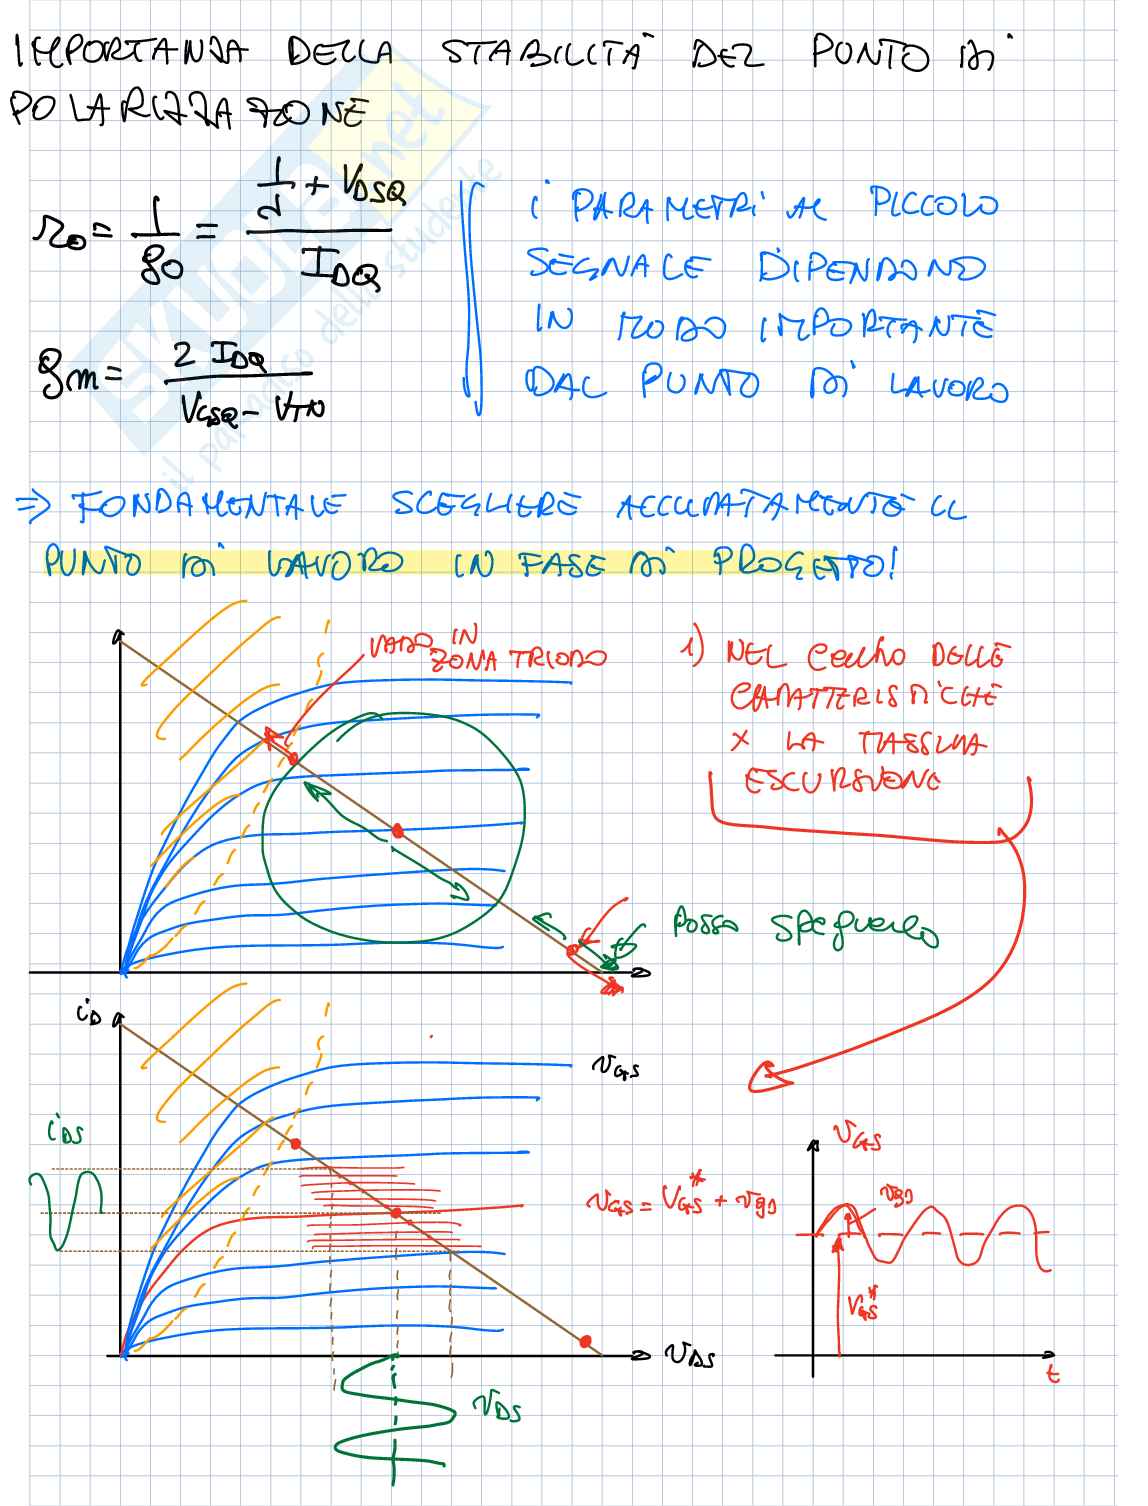 IMPORTANZA DELLA STABILITÀ DEL PUNTO DI
POLARIZZAZIONE
r0 = 1/g0 = (1/λ + VDSQ)/IDQ
gm = 2 IDQ/(VGSQ - VTN)
i PARAMETRI AL PICCOLO
SEGNALE DIPENDONO
IN MODO IMPORTANTE
DAL PUNTO DI LAVORO
⇒ FONDAMENTALE SCEGLIERE ACCURATAMENTE IL
PUNTO DI LAVORO IN FASE DI PROGETTO!
VADO IN
ZONA TRIODO
1) NEL Centro DELLE
CARATTERISTICHE
X LA MASSIMA
ESCURSIONE
Posso spegnerlo
iD
vGS
iDS
vGS = VGS* + vgs
vDS
vDS
vGS
vgs
VGS*
t
SKUOLA.net
il paradiso dello studente